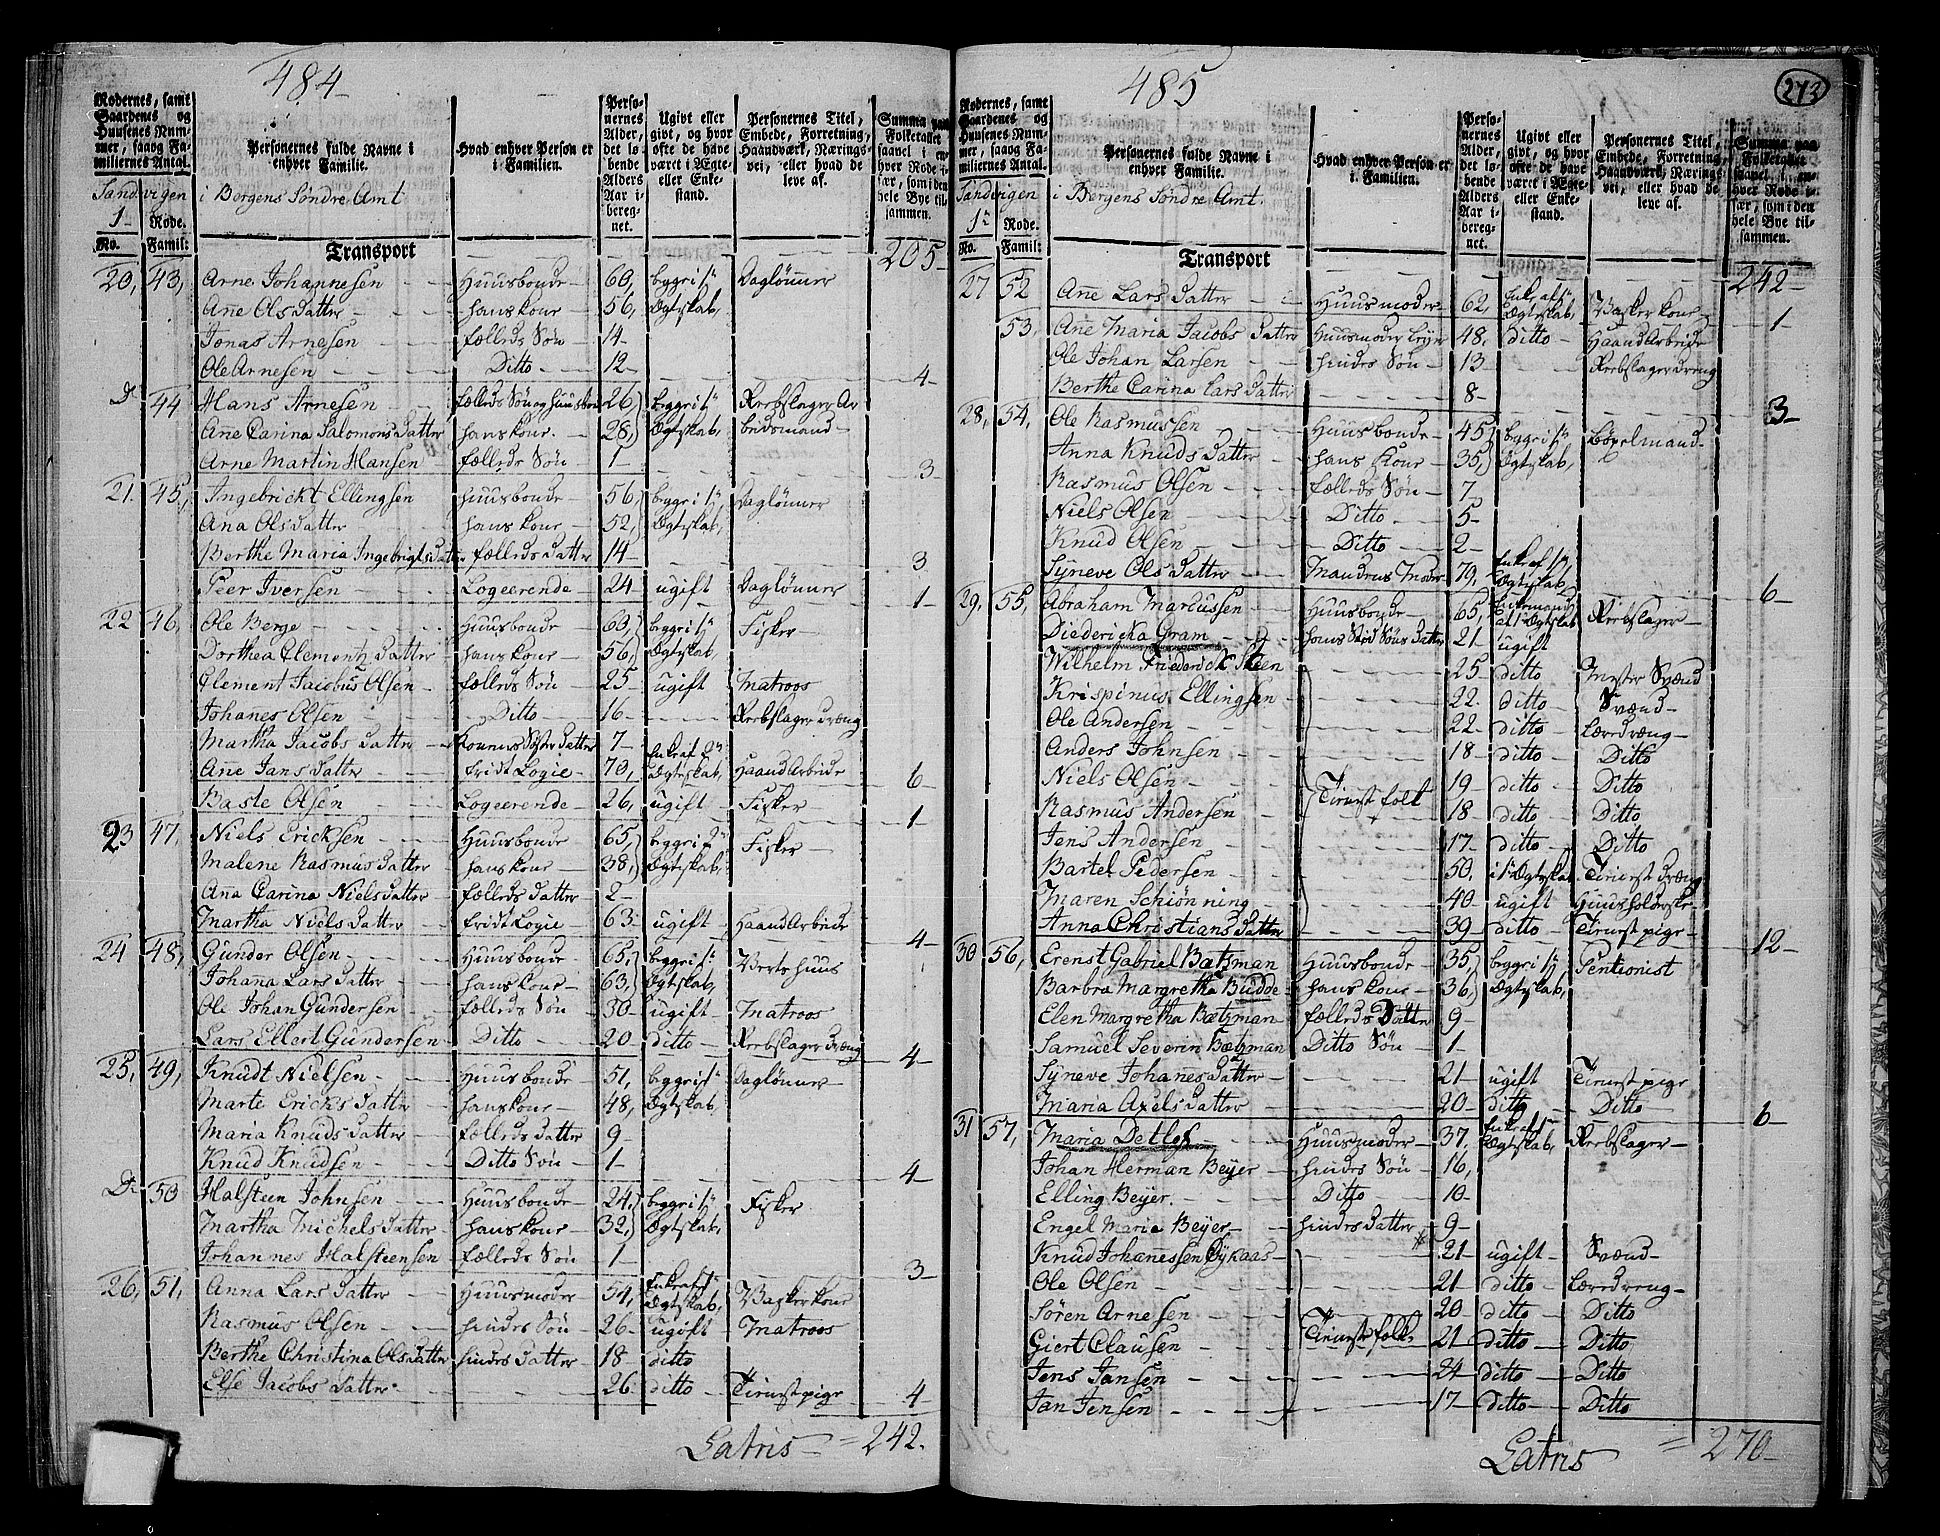 484
Rodernes, samt Gaardenes og Huusenes Nummer, saavog Familiernes Antal.
Personernes fulde Navne i enhver Familie.
Hvad enhver Person er i Familien.
Personernes Alder, det løbende Alders Aar iberegnet.
Ugivt eller givt, og hvor ofte de have været i Ægte- eller Enkestand.
Personernes Titel, Embede, Forretning, Haandværk, Næringsvei, eller hvad de leve af.
Summa paa Folketallet saavel i enhver Rode især, som i den hele Bye tilsammen.
Sandvigen i Bergens Søndre Amt
1 Rode.
No. Famil: Transport 205
20, 43, Arne Johannesen Huusbonde 60, begge i 1ste Daglønner
Ane Olsdatter hans kone 56, Ægteskab,
Jonas Arnesen fælleds Søn 14
Ole Arnesen Ditto 12 4
D 44 Hans Arnesen fælleds Søn og Huusbon 26 begge i 1ste Reebslager Ar
Ane Carina Salomons datter hans kone 28, Ægteskab, beidsmand
Arne Martin Hansen fælleds Søn 1 3
21. 45, Ingebrickt Ellingsen Huusbonde 56 begge i 1ste Daglønner
Ana Olsdatter hans kone 52, Ægteskab,
Berthe Maria Ingebrigtsdatter fælleds datter 14 3
Peer Iversen Logeerende 24 ugift Daglønner 1
22 46, Ole Berge Huusbonde 60 begge i 1ste Fisker
Dorthea Clementz datter hans kone 56, Ægteskab
Clement Jacobus Olsen fælleds Søn 25 ugift Matroos
Johanes Olsen Ditto 16 Reebslager dreng
Martha Jacobs datter Konens Søster datter 7
Ane Jans datter fridt Logie 70, Enke af 2de Ægteskab, Haand Arbeide 6
Baste Olsen Logeerende 26, ugift Fisker 1
23 47, Niels Ericksen Huusbonde 65, begge i 2de Fisker
Malene Rasmusdatter hans kone 38, Ægteskab,
Ana Carina Nielsdatter fælleds datter 2
Martha Niels datter fridt Logie 63 ugift Haand Arbeide 4
24 48, Gunder Olsen Huusbonde 65, begge i 1ste Vertshuus
Johana Lars datter hans kone 63, Ægteskab,
Ole Johan Gundersen fælleds Søn 30 ugift Matroos
Lars Ellert Gundersen Ditto 20 ditto Reebslager dreng 4
25, 49, Knudt Nielsen Huusbonde 51, begge i 1ste Daglønner
Marte Ericks datter hans kone 48, Ægteskab,
Maria Knuds datter fælleds datter 9
Knud Knudsen Ditto Søn 1 4
D. 50 Halsteen Johnsen Huusbonde 24, begge i 1ste Fisker
Martha Michelsdatter hans kone 32, Ægteskab,
Johannes Halsteensen fælleds Søn 1 3
26, 51, Anna Lars datter Huusmoder 54, Enke af 1ste Ægteskab, Vasker kone
Rasmus Olsen hindes Søn 26 ugift Matroos
Berthe Christina Olsdatter hindes datter 18 ditto
Else Jacobs datter 26 ditto Tienestpige 4
Latris = 242.
485
273
Rodernes, samt Gaardenes og Huusenes Nummer, saavog Familiernes Antal.
Personernes fulde Navne i enhver Familie.
Hvad enhver Person er i Familien.
Personernes Alder, det løbende Alders Aar iberegnet.
Ugivt eller givt, og hvor ofte de have været i Ægte- eller Enkestand.
Personernes Titel, Embede, Forretning, Haandværk, Næringsvei, eller hvad de leve af.
Summa paa Folketallet saavel i enhver Rode især, som i den hele Bye tilsammen.
Sandvigen i Bergens Søndre Amt.
1 Rode.
No. Famil: Transport 242
27 52 Ane Lars datter Huusmoder 62, Enke af 1ste Ægteskab, Vasker kone 1
53, Ane Maria Jacobs datter Huusmoder 48, ditto Haand Arbeide
Ole Johan Larsen hindes Søn 13 Reebslager dreng
Berthe Carina Lars datter 8 3
28, 54, Ole Rasmussen Huusbonde 45 begge i 1ste
Anna Knuds datter hans kone 35, Ægteskab,
Rasmus Olsen fælleds Søn 7
Niels Olsen Ditto 5
Knud Olsen Ditto 2
Syneve Ols datter Mandens Moder 79, Enke af 1ste Ægteskab 6
29, 55, Abraham Marcussen Huusbonde 65, Enkemand af 1 Ægteskab Reebslager
Diedericka Gram hans Sted Søns datter 21 ugift
Wilhelm Friederick Steen 25 ditto Mester Svend
Krispinus Ellingsen 22. ditto Svend
Ole Andersen 22 ditto Læredreng
Anders Johnsen 18 ditto Ditto
Niels Olsen Tienestfolk 19 ditto Ditto
Rasmus Andersen 18 ditto Ditto
Jens Andersen 17 ditto Ditto
Bartel Pedersen 50, i 1ste Ægteskab Tienest dreng
Maren Schiønning 40 ugift Huusholderske
Anna Christians datter 39 ditto Tienest pige 12
30 56, Erenst Gabriel Batzman Huusbonde 35, begge i 1ste Pentionist
Barbra Margretha Budde hans kone 36, Ægteskab,
Elen Margretha Bætzman fælleds Datter 9
Samuel Severin Bætzman Ditto Søn 1
Syneve Johanes datter 21 ugift Tienest pige
Maria Axels datter 20 ditto Ditto 6
31 57, Maria Detlef Huusmoder 37, Enke af 1ste Ægteskab, Reebslager
Johan Herman Beyer hindes Søn 16,
Elling Beyer Ditto 10
Engel Maria Beyer hindes datter 9
Knud Johanessen Dykaas 21 ugift Svend
Ole Olsen 21 ditto Læredreng
Søren Arnesen 20 ditto Ditto
Giert Clausen Tienestefolk 21 ditto Ditto
Jens Jansen 24 ditto Ditto
Jan Jensen 17 ditto Ditto
Latris = 270